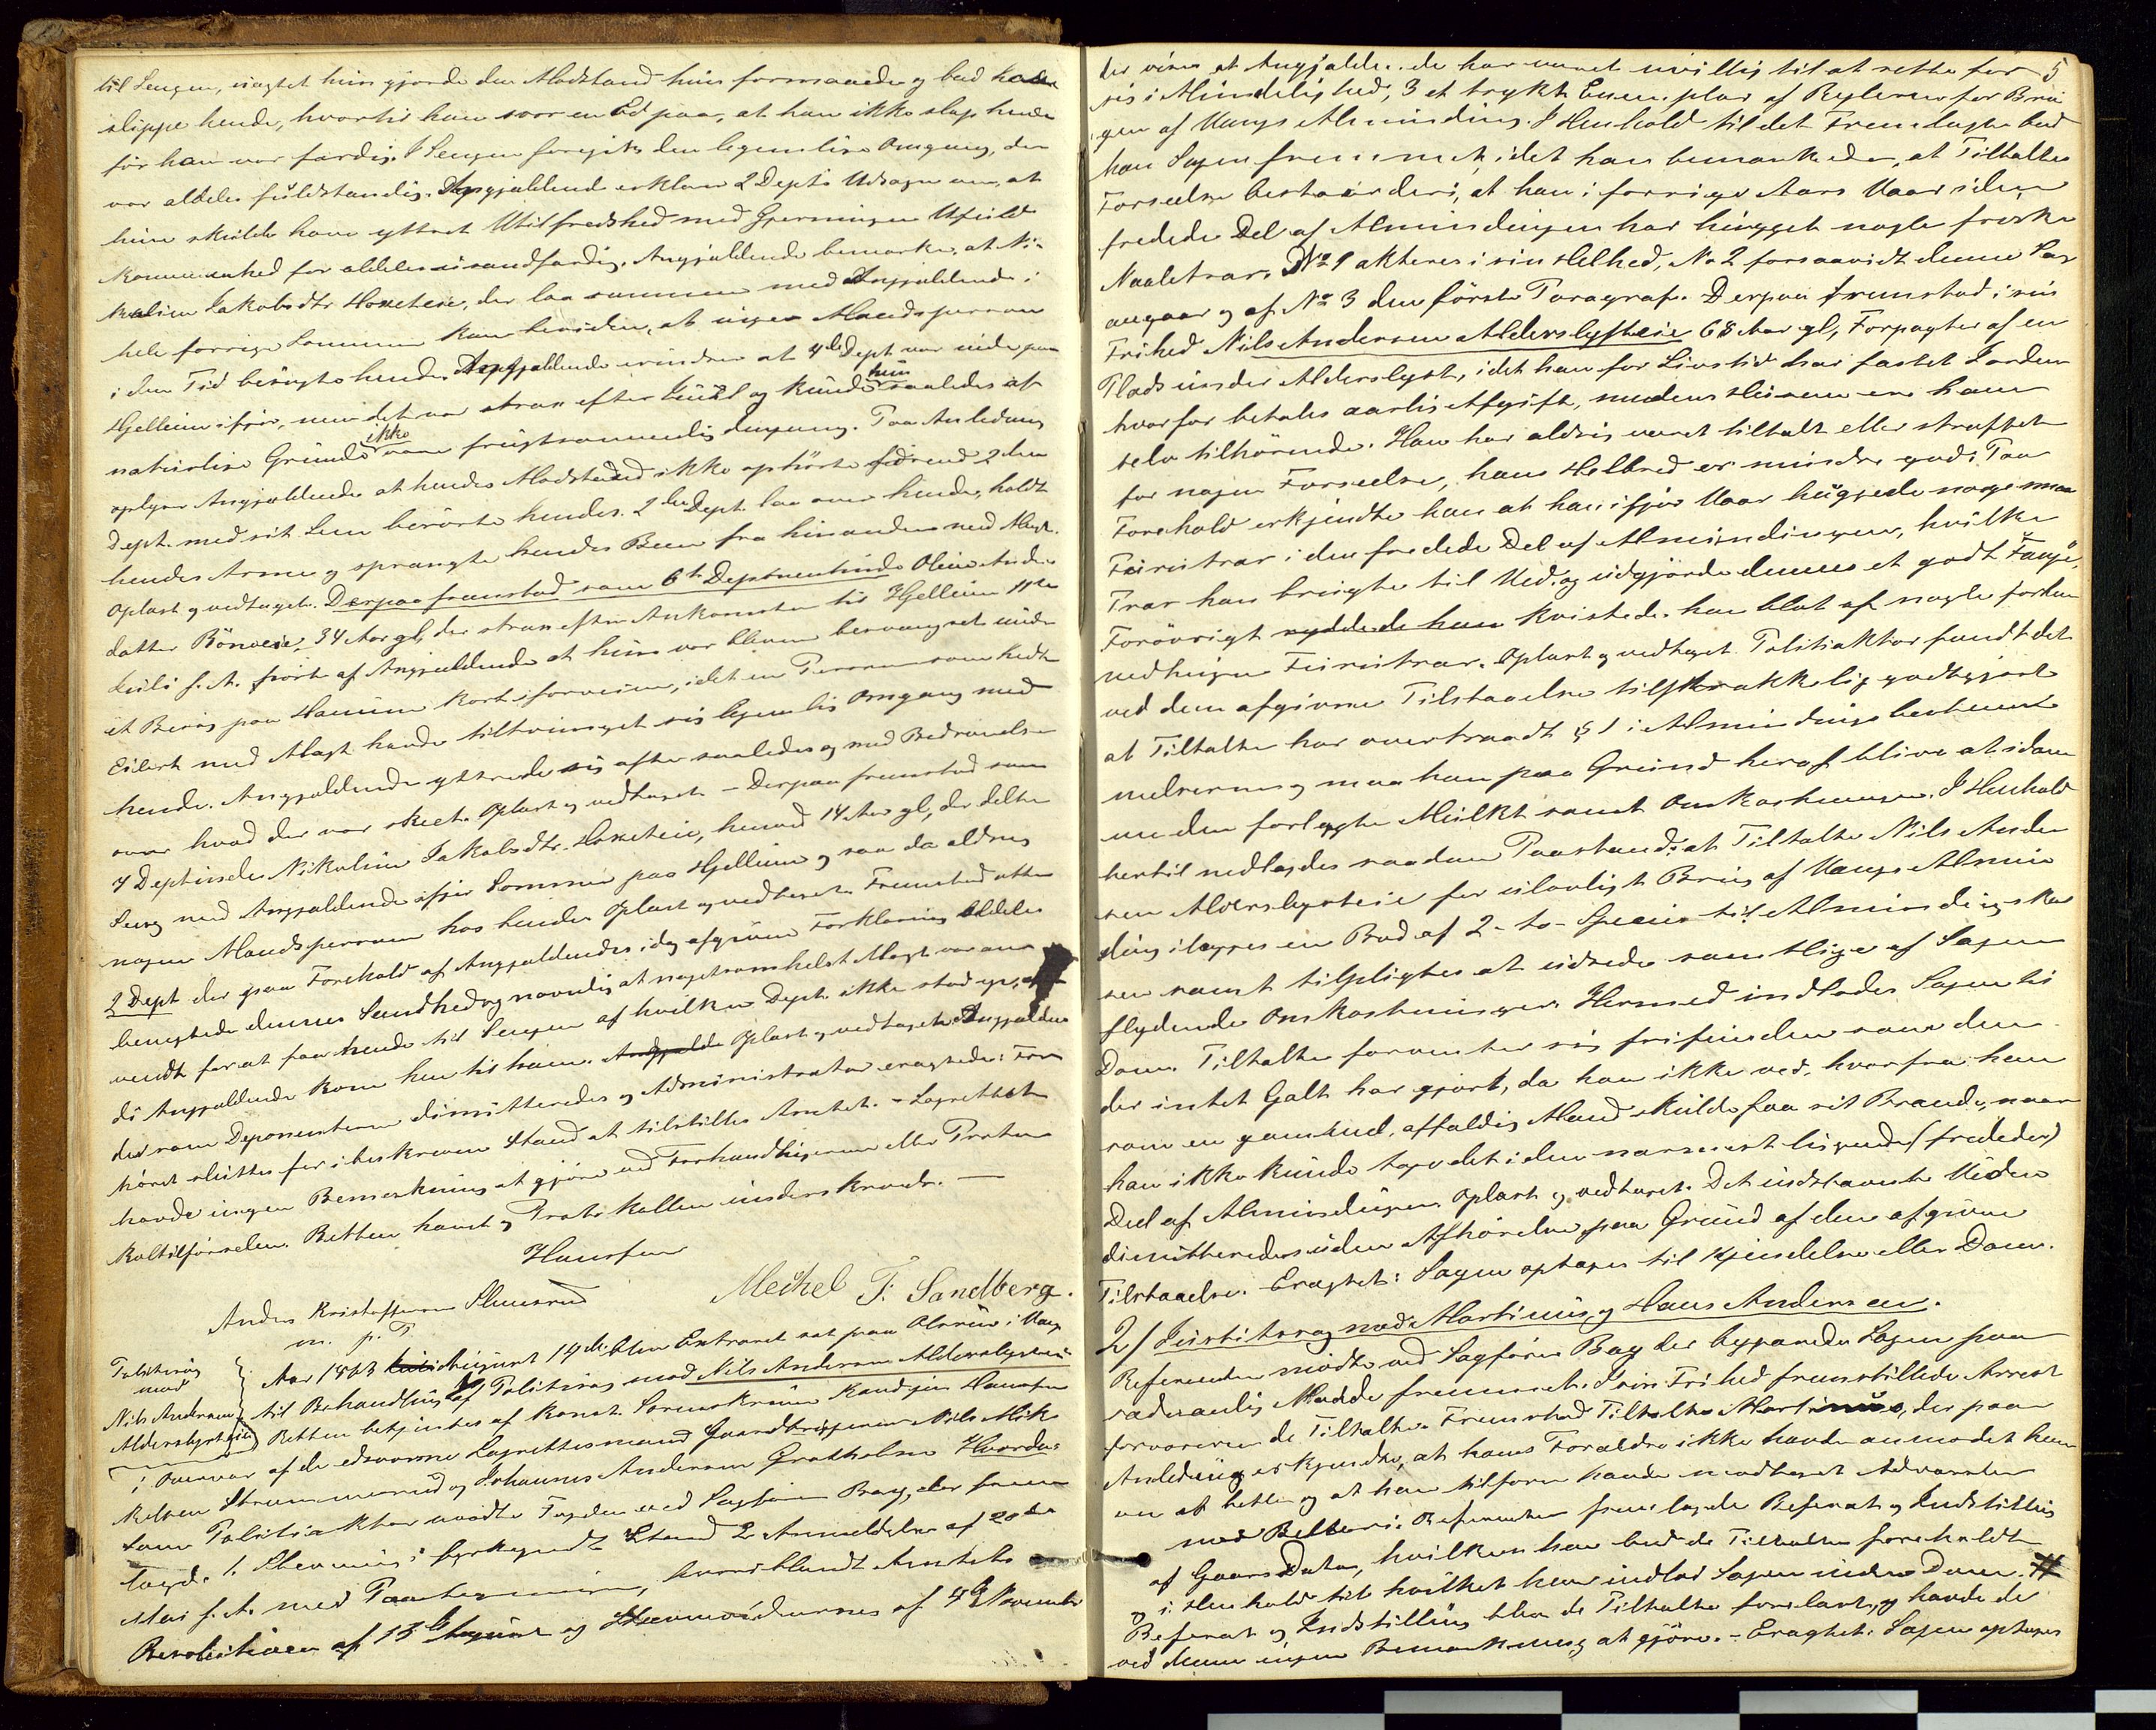 til Sengen, uagtet hun gjorde den Modstand hun formaaede og bad ham
slippe hende, hvortil han svor en Ed paa, at han ikke slap hende
før han var færdig. I Sengen foregik den legemlige Omgang, der
var aldeles fuldstændig. Angjældende erklærer 2 Dept's Udsagn om, at
hun skulde have yttret Utilfredshed med Gjerningens Ufuld
kommenhed for aldeles usandfærdig. Angjældende bemærker, at Ni-
koline Jakobsdtr Hoxeteie, der laa sammen med Angjældende i
hele forrige Sommer kan bevidne, at ingen Mandsperson
i den Tid besøgte hende. Angjældende erindrer at 4de Dept var inde paa
Hjellum ifjor, men det var strax efter Juul og kunde hun saaledes af
naturlige Grunde ikke være frugtsommelig dengang. Paa Anledning
oplyser Angjældende at hendes Modstand ikke ophørte førend 2den
Dept. med sit Lem berørte hendes. 2den Dept. laa over hende, holdt
hendes Arme og sprængte hendes Been fra hinanden med Magt.
Oplæst og vedtaget. Derpaa fremstod som 6te Deponentinde Oline Anders
datter Bönveie, 34 Aar gl, der strax efter Ankomsten til Hjellum 11te
Juli f. A. hørte af Angjældende at hun var bleven besvangret under
et Besøg paa Hamar kort iforveien, idet en Person som hedte
Eilert med Magt havde tiltvunget sig legemlig Omgang med
hende. Angjældende yttrede sig ofte saaledes og med Bedrøvelse
over hvad der var skeet. Oplæst og vedtaget - Derpaa fremstod som
7 Deptinde Nikoline Jakobsdtr. Hoxeteie, henved 14 Aar gl, der delte
Seng med Angjældende ifjor Sommer paa Hjellum og saa da aldrig
nogen Mandsperson hos hende. Oplæst og vedtaget. Fremstod atter
2 Dept der paa Forehold af Angjældendes idag afgivne Forklaring aldeles
benegtede dennes Sandhed og navnlig at nogetsomhelst Magt var an
vendt for at faa hende til Sengen af hvilken Dept. ikke stod op,
da Angjældende kom hen til ham. Oplæst og vedtaget. Angjælden
de som Deponenterne dimitteredes og Administrator eragtede: For
høret sluttes for i beskreven Stand at tilstilles Amtet. - Lagrettet
havde ingen Bemærkning at gjøre ved Forhandlingerne eller Proto
koltilførselen. Retten hævet og Protokollen underskrevet. —
Hansen
Anders Kristoffersen Skuusrud
m. p. P.
Mechel F. Sandberg.
Politisag
mod
Nils Andersen
Alderslysteie
Aar 1863 August 14de blev Extraret sat paa Olsrud i Vang
til Behandling af Politisag mod Nils Andersen Alderslysteie
Retten betjentes af konst. Sorenskriver Kand jur Hansen
i Overvær af de edsvorne Lagrettesmænd Gaardbrugerne Nils Mik
kelsen Strømmerud og Johannes Andersen Grøtholm. Hvorda:
Som Politiaktor mødte Fogden ved Sagfører Bay, der frem
lagde 1. Stevning i forkyndt Stand 2. Anmeldelse af 20de
Mai f. A. med Paategninger, hvoriblandt Amtets
Resolution af 13de August og Stevnevidnernes af 4de November
5
der viser at Angjældende har været uvillig til at rette for
sig i Mindelighed, 3 et trykt Exemplar af Reglerne for Bru
gen af Vangs Almindig. I Henhold til det Fremlagte bad
han Sagen fremmet, idet han bemærkede, at Tiltaltes
Forseelse bestaar deri, at han i forrige Aars Vaar i den
fredede Del af Almindingen har hugget nogle friske
Naaletrær. No 1 akteres i sin Helhed, No 2 forsaavidt denne Sag
angaar og af No 3 den første Paragraf. Derpaa fremstod i sin
Frihed Nils Andersen Alderslysteie 68 Aar gl, Forpagter af en
Plads under Alderslyst, idet han for Livstid har fæstet Jorden
hvorfor betales aarlig Afgift, medens Husene ere ham
selv tilhørende. Han har aldrig været tiltalt eller straffet
for nogen Forseelse, hans Helbred er mindre god. Paa
Forehold erkjendte han at han ifjor Vaar huggede nogle smaa
Furutrær i den fredede Del af Almindingen, hvilke
Trær han brugte til Ved og udgjorde denne et godt Fange.
Forøvrigt kvistede han blot af nogle forhen
nedhugne Furutrær. Oplæst og vedtaget. Politiaktor fandt det
ved den afgivne Tilstaaelse tilstrækkelig godtgjort
at Tiltalte har overtraadt § 1 i Almindings bestemmel
melserne og maa han paa Grund heraf blive at idøm
me den forlagte Mulkt samt Omkostninger. I Henhold
hertil nedlagdes saadan Paastand: at Tiltalte Nils Ander
sen Alderslysteie for ulovligt Brug af Vangs Almin
ding ilægges en Bod af 2 - to - Specier til Almindingskas
sen samt tilpligtes at udrede samtlige af Sagen
flydende Omkostninger. Hermed indlodes Sagen til
Dom. Tiltalte forventer sig frifunden som den
der intet Galt har gjort, da han ikke ved, hvorfra han
som en gammel, affældig Mand skulde faa sit Brænde, naar
han ikke kunde tage det i den nærmest liggende (fredede)
Deel af Almindingen. Oplæst og vedtaget. Det indstævnte Vidne
dimitteredes uden Afhørelse paa Grund af den afgivne
Tilstaaelse. Eragtet: Sagen optages til Kjendelse eller Dom.
2/ Justitssag mod Martinus og Hans Andersen.
Referenten mødte ved Sagfører Bay der begjærede Sagen paa
sædvanlig Maade fremmet. I sin Frihed fremstillede Arrest
forvareren de Tiltalte. Fremstod Tiltalte Martinus, der paa
Anledning erkjendte, at hans Forældre ikke havde anmodet ham
om at betle og at han tilforn havde modtaget Advarsler
mod Betleri. Referenten fremlagde Referat og Indstilling
af Gaars Dato, hvilken han bad de Tiltalte foreholdt
og i Henhold til hvilket han indlod Sagen under Dom. #
Referat og Indstilling blev de Tiltalte forelæst, og havde de
ved denne ingen Bemærkning at gjøre. - Eragtet: Sagen optages